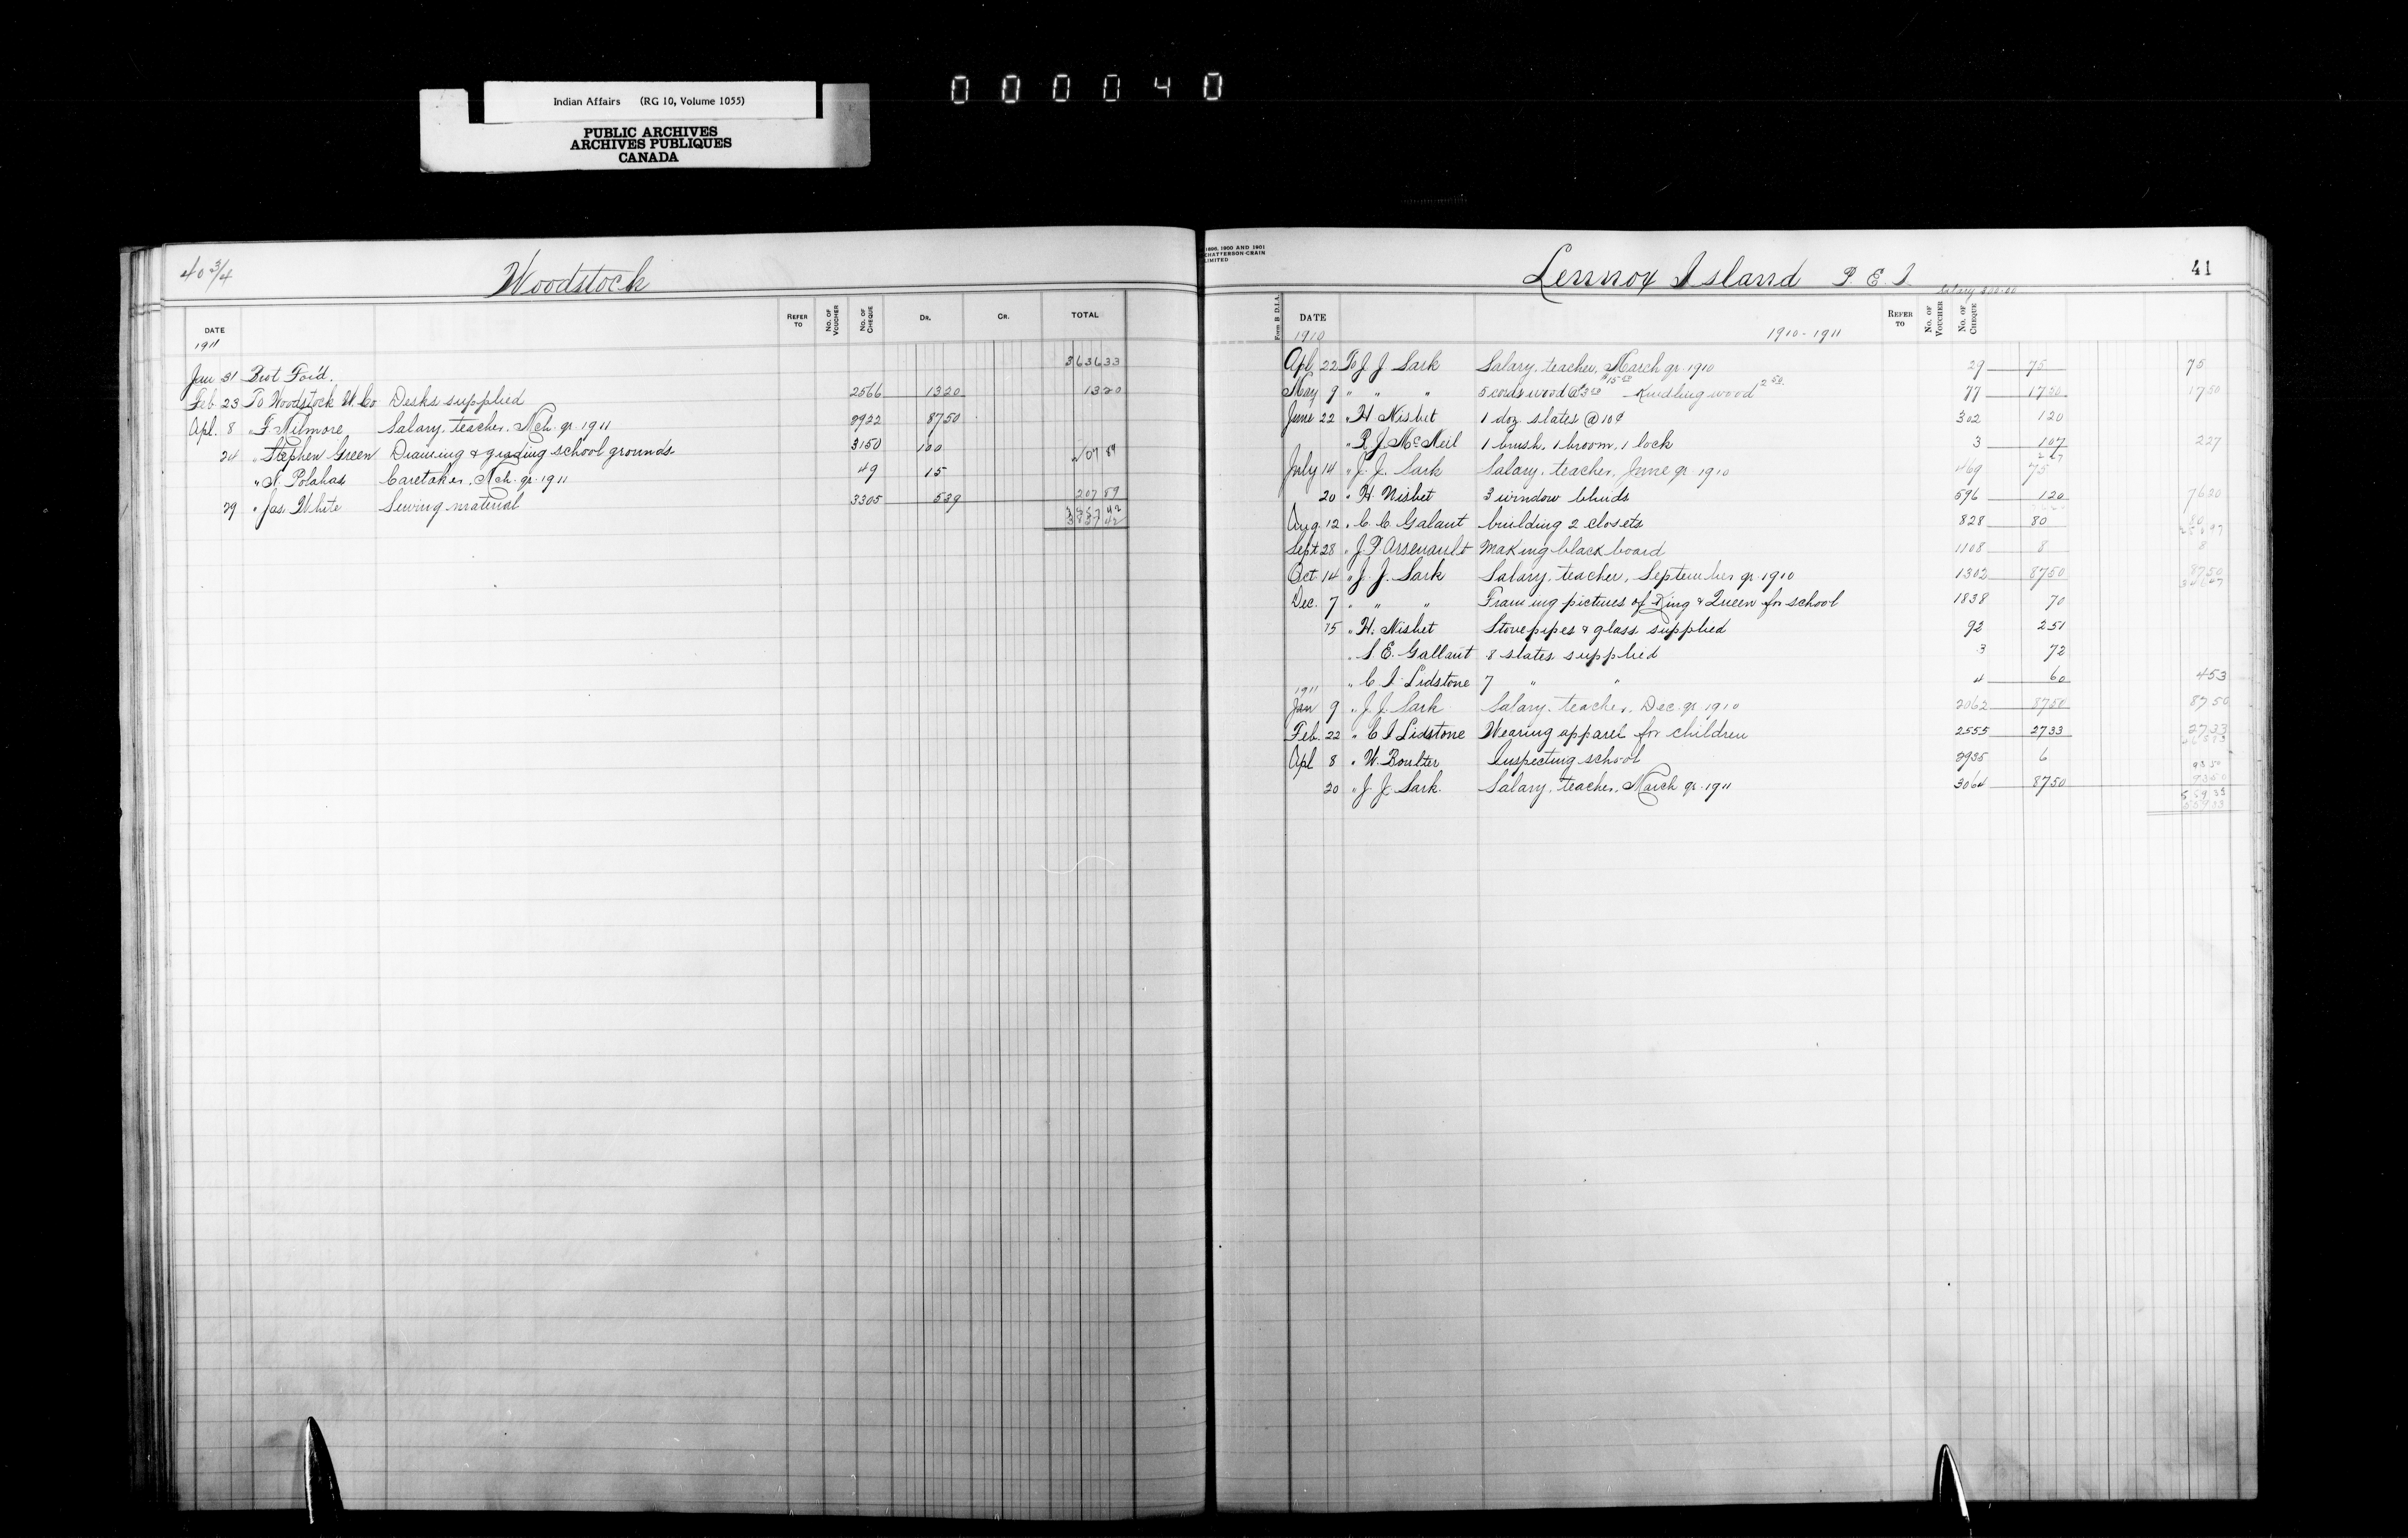 Indian Affairs (RG 10, Volume 1055)
PUBLIC ARCHIVES
ARCHIVES PUBLIQUES
CANADA
000040
40 3/4
Woodstock
DATE REFER TO No. OF VOUCHER No. OF CHEQUE DR. CR. TOTAL
1911
Jan 31 Brot For'd. 3636 33
Feb 23 To Woodstock W. Co Desks supplied 2566 13 20 13 20
Apl. 8 " F. Milmore Salary, teacher, Mch. qr. 1911 2922 87 50
24 " Stephen Green Draining & grading school grounds 3150 100 207 89
" N. Polahas Caretaker, Mch. qr. 1911 49 15
29 " Jas. White Sewing material 3305 5 39 207 89
3857 42
1896, 1900 AND 1901
CHATTERSON-CRAIN
LIMITED
Lennox Island P. E. I.
41
Salary 300.00
Form B D.I.A. DATE REFER TO No. OF VOUCHER No. OF CHEQUE
1910 1910-1911
Apl 22 To J. J. Sark Salary, teacher, March qr. 1910 29 75 75
May 9 " " " 5 cords wood @ 3 00 $15 00 Kindling wood 2 50 77 17 50 17 50
June 22 " H. Nisbet 1 doz slates @ 10¢ 302 1 20
" P. J. McNeil 1 brush, 1 broom, 1 lock 3 1 07 2 27
2 27
July 14 " J. J. Sark Salary, teacher, June qr. 1910 469 75
20 " H. Nisbet 3 window blinds 596 1 20 76 20
Aug. 12 " C. C. Galant building 2 closets 828 80 80
Sept 28 " J. P. Arsenault Making black board 1108 8 8
Oct 14 " J. J. Sark Salary, teacher, September qr 1910 1302 87 50 87 50
Dec. 7 " " " Framing pictures of King & Queen for school 1838 70
15 " H. Nisbet Stovepipes & glass supplied 92 2 51
" S. E. Gallant 8 slates supplied 3 72
" C. I. Lidstone 7 " " 4 60 4 53
1911
Jan 9 " J. J. Sark Salary, teacher, Dec. qr. 1910 2062 87 50 87 50
Feb. 22 " C. I. Lidstone Wearing apparel for children 2555 27 33 27 33
Apl 8 " W. Boulter Inspecting school 2935 6 93 50
20 " J. J. Sark. Salary, teacher, March qr. 1911 3064 87 50 93 50
559 33
559 33